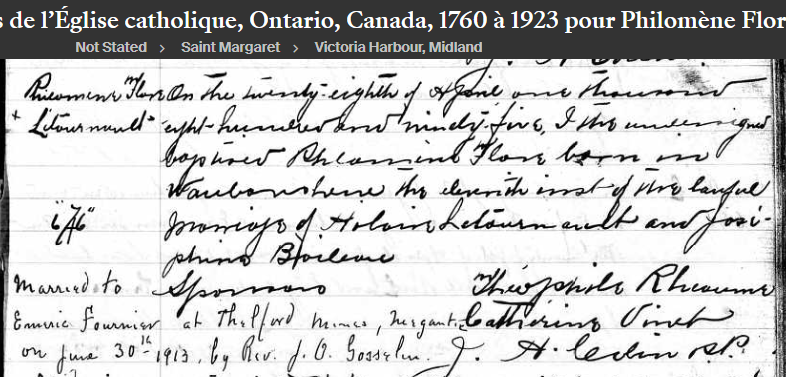 s de l'Église catholique, Ontario, Canada, 1760 à 1923 pour Philomène Flor
Not Stated > Saint Margaret > Victoria Harbour, Midland
Flore On the twenty-eighth of April one thousand
Létourneault eight-hundred and ninety-five, I the undersigned
baptised Flore born in
Waubaushene the eleventh inst of the lawful
"76" marriage of Létourneault and José-
phine Boileau
Married to Sponsors Théophile Rheaume
Emeric Fournier at Thetford Mines, Megantic Catherine Vinet
on June 30th 1913, by Rev. J. O. Gosselin. J.